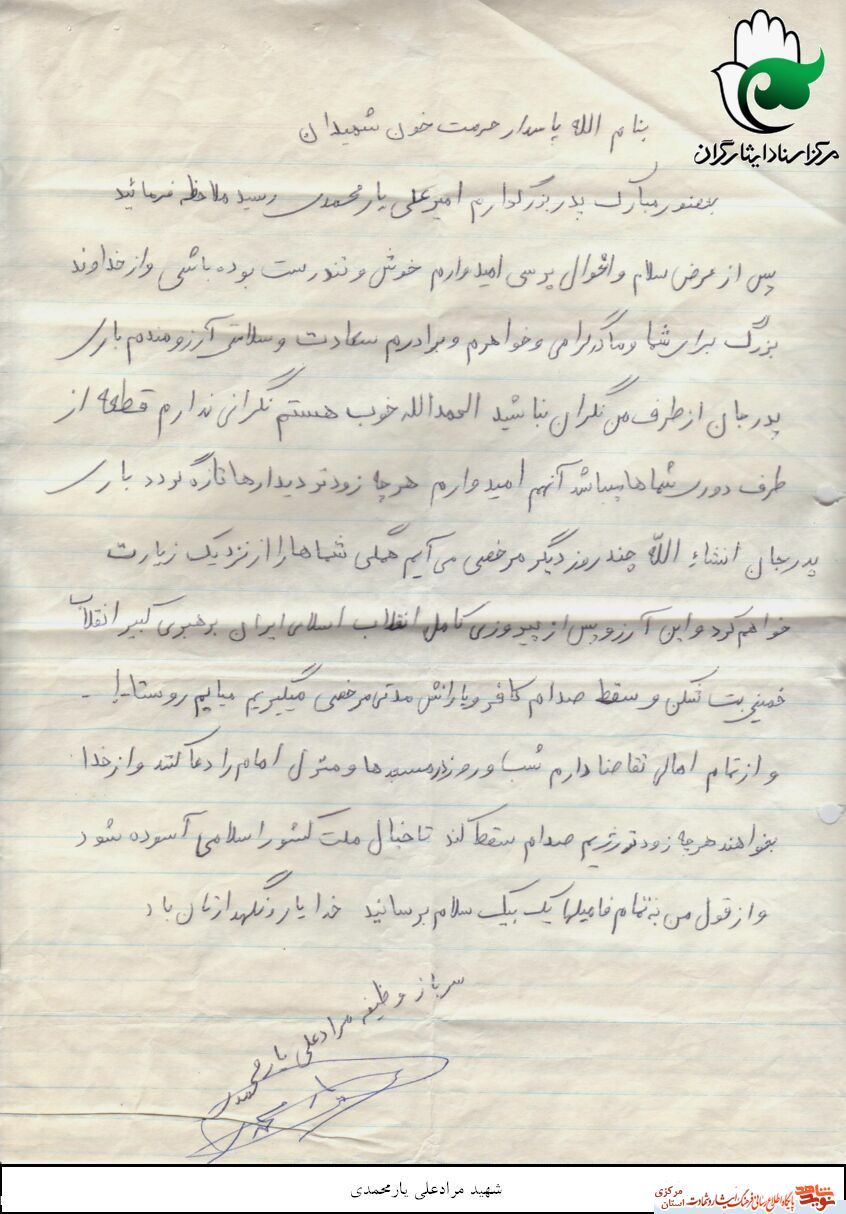 مرکز اسناد ایثارگران
بنام الله پاسدار حرمت خون شهیدان
بحضور مبارک پدر بزرگوارم امیرعلی یارمحمدی رسید ملاحظه فرمائید
پس از عرض سلام و احوال پرسی امیدوارم خوش و تندرست بوده باشی و از خداوند
بزرگ برای شما و مادر گرامی و خواهرم و برادرم سعادت و سلامتی آرزومندم باری
پدر جان از طرف من نگران نباشید الحمدالله خوب هستم نگرانی ندارم قطعه از
طرف دوری شماها میباشد آنهم امیدوارم هر چا زودتر دیدارها تازه گردد باری
پدر جان انشاء الله چند روز دیگر مرخصی می‌آیم همگی شماها را از نزدیک زیارت
خواهم کرد و این آرزو پس از پیروزی کامل انقلاب اسلامی ایران برهبری کبیر انقلاب
خمینی بت شکن و سقط صدام کافر و یارانش مدتی مرخصی میگیریم میایم روستا
و از تمام اهالی تقاضا دارم شب و روز در مسجدها و منزل امام را دعا کنند و از خدا
بخواهند هر چه زودتر رژیم صدام سقط کند تا خیال ملت کشور اسلامی آسوده شود
و از قول من به تمام فامیلها یک بیک سلام برسانید خدا یار و نگهدارتان باد
سرباز وظیفه مرادعلی یارمحمدی
شهید مرادعلی یارمحمدی
نوید شاهد
پایگاه اطلاع رسانی فرهنگ ایثار و شهادت استان مرکزی